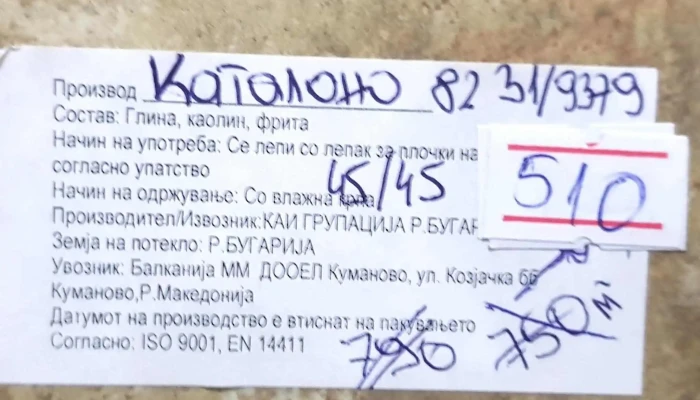 Производ Каталоно 82 31/9379
Состав: Глина, каолин, фрита
Начин на употреба: Се лепи со лепак за плочки на
согласно упатство
45/45
Начин на одржување: Со влажна крпа
Производител/Извозник:КАИ ГРУПАЦИЈА Р.БУГАР
510
Земја на потекло: Р.БУГАРИЈА
Увозник: Балканија ММ ДООЕЛ Куманово, ул. Козјачка бб
Куманово,Р.Македонија
Датумот на производство е втиснат на пакувањето
Согласно: ISO 9001, EN 14411
790
750